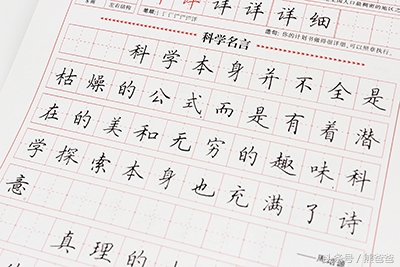 左右结构 笔顺:
详 详 详 详 细
造句: 你的计划书做得很详细,可以照章执行。
科学名言
科学本身并不全是
枯燥的公式而是有着潜
在的美和无穷的趣味科
学探索本身也充满了诗
意
真理的
头条号 / 熊爸爸